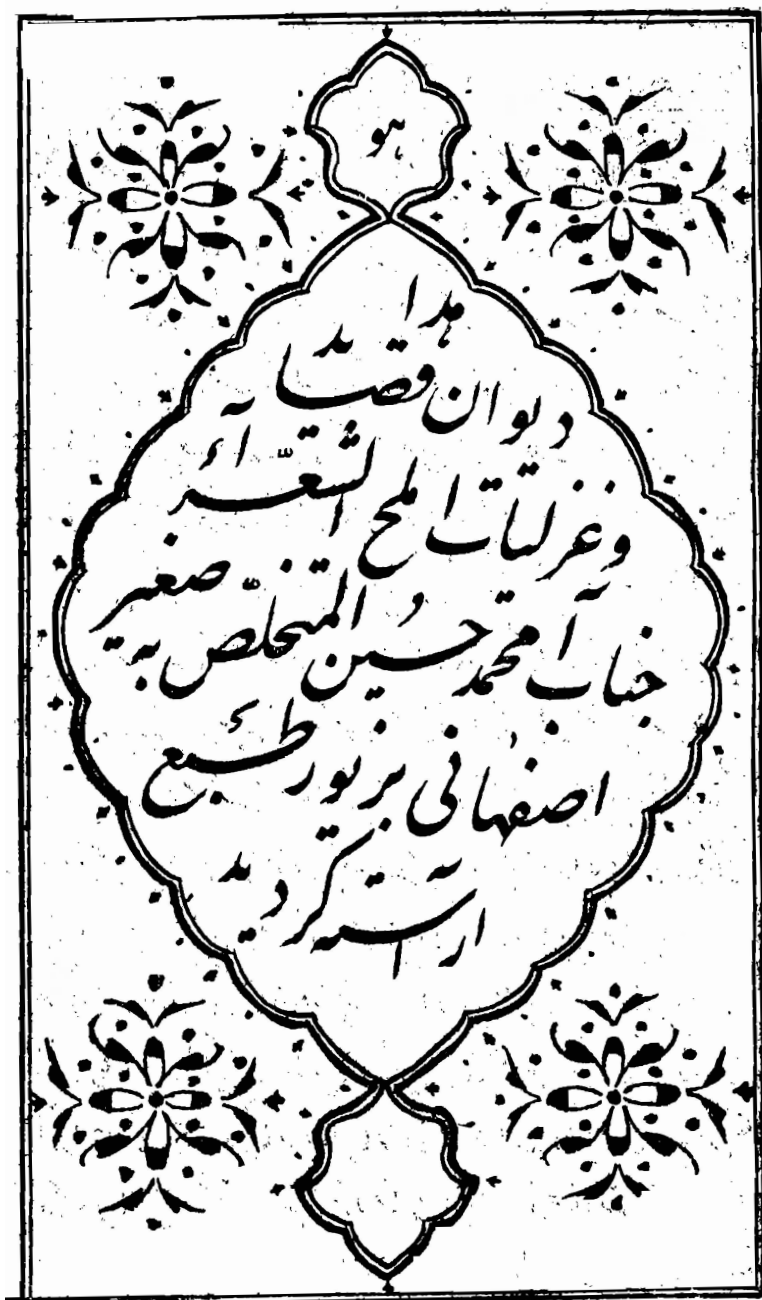 هو
هذا
دیوان قصاید
و غزلیات املح الشعرآء
جناب آمحمد حسین المتخلص به صغیر
اصفهانی بزیور طبع
آراسته گردید